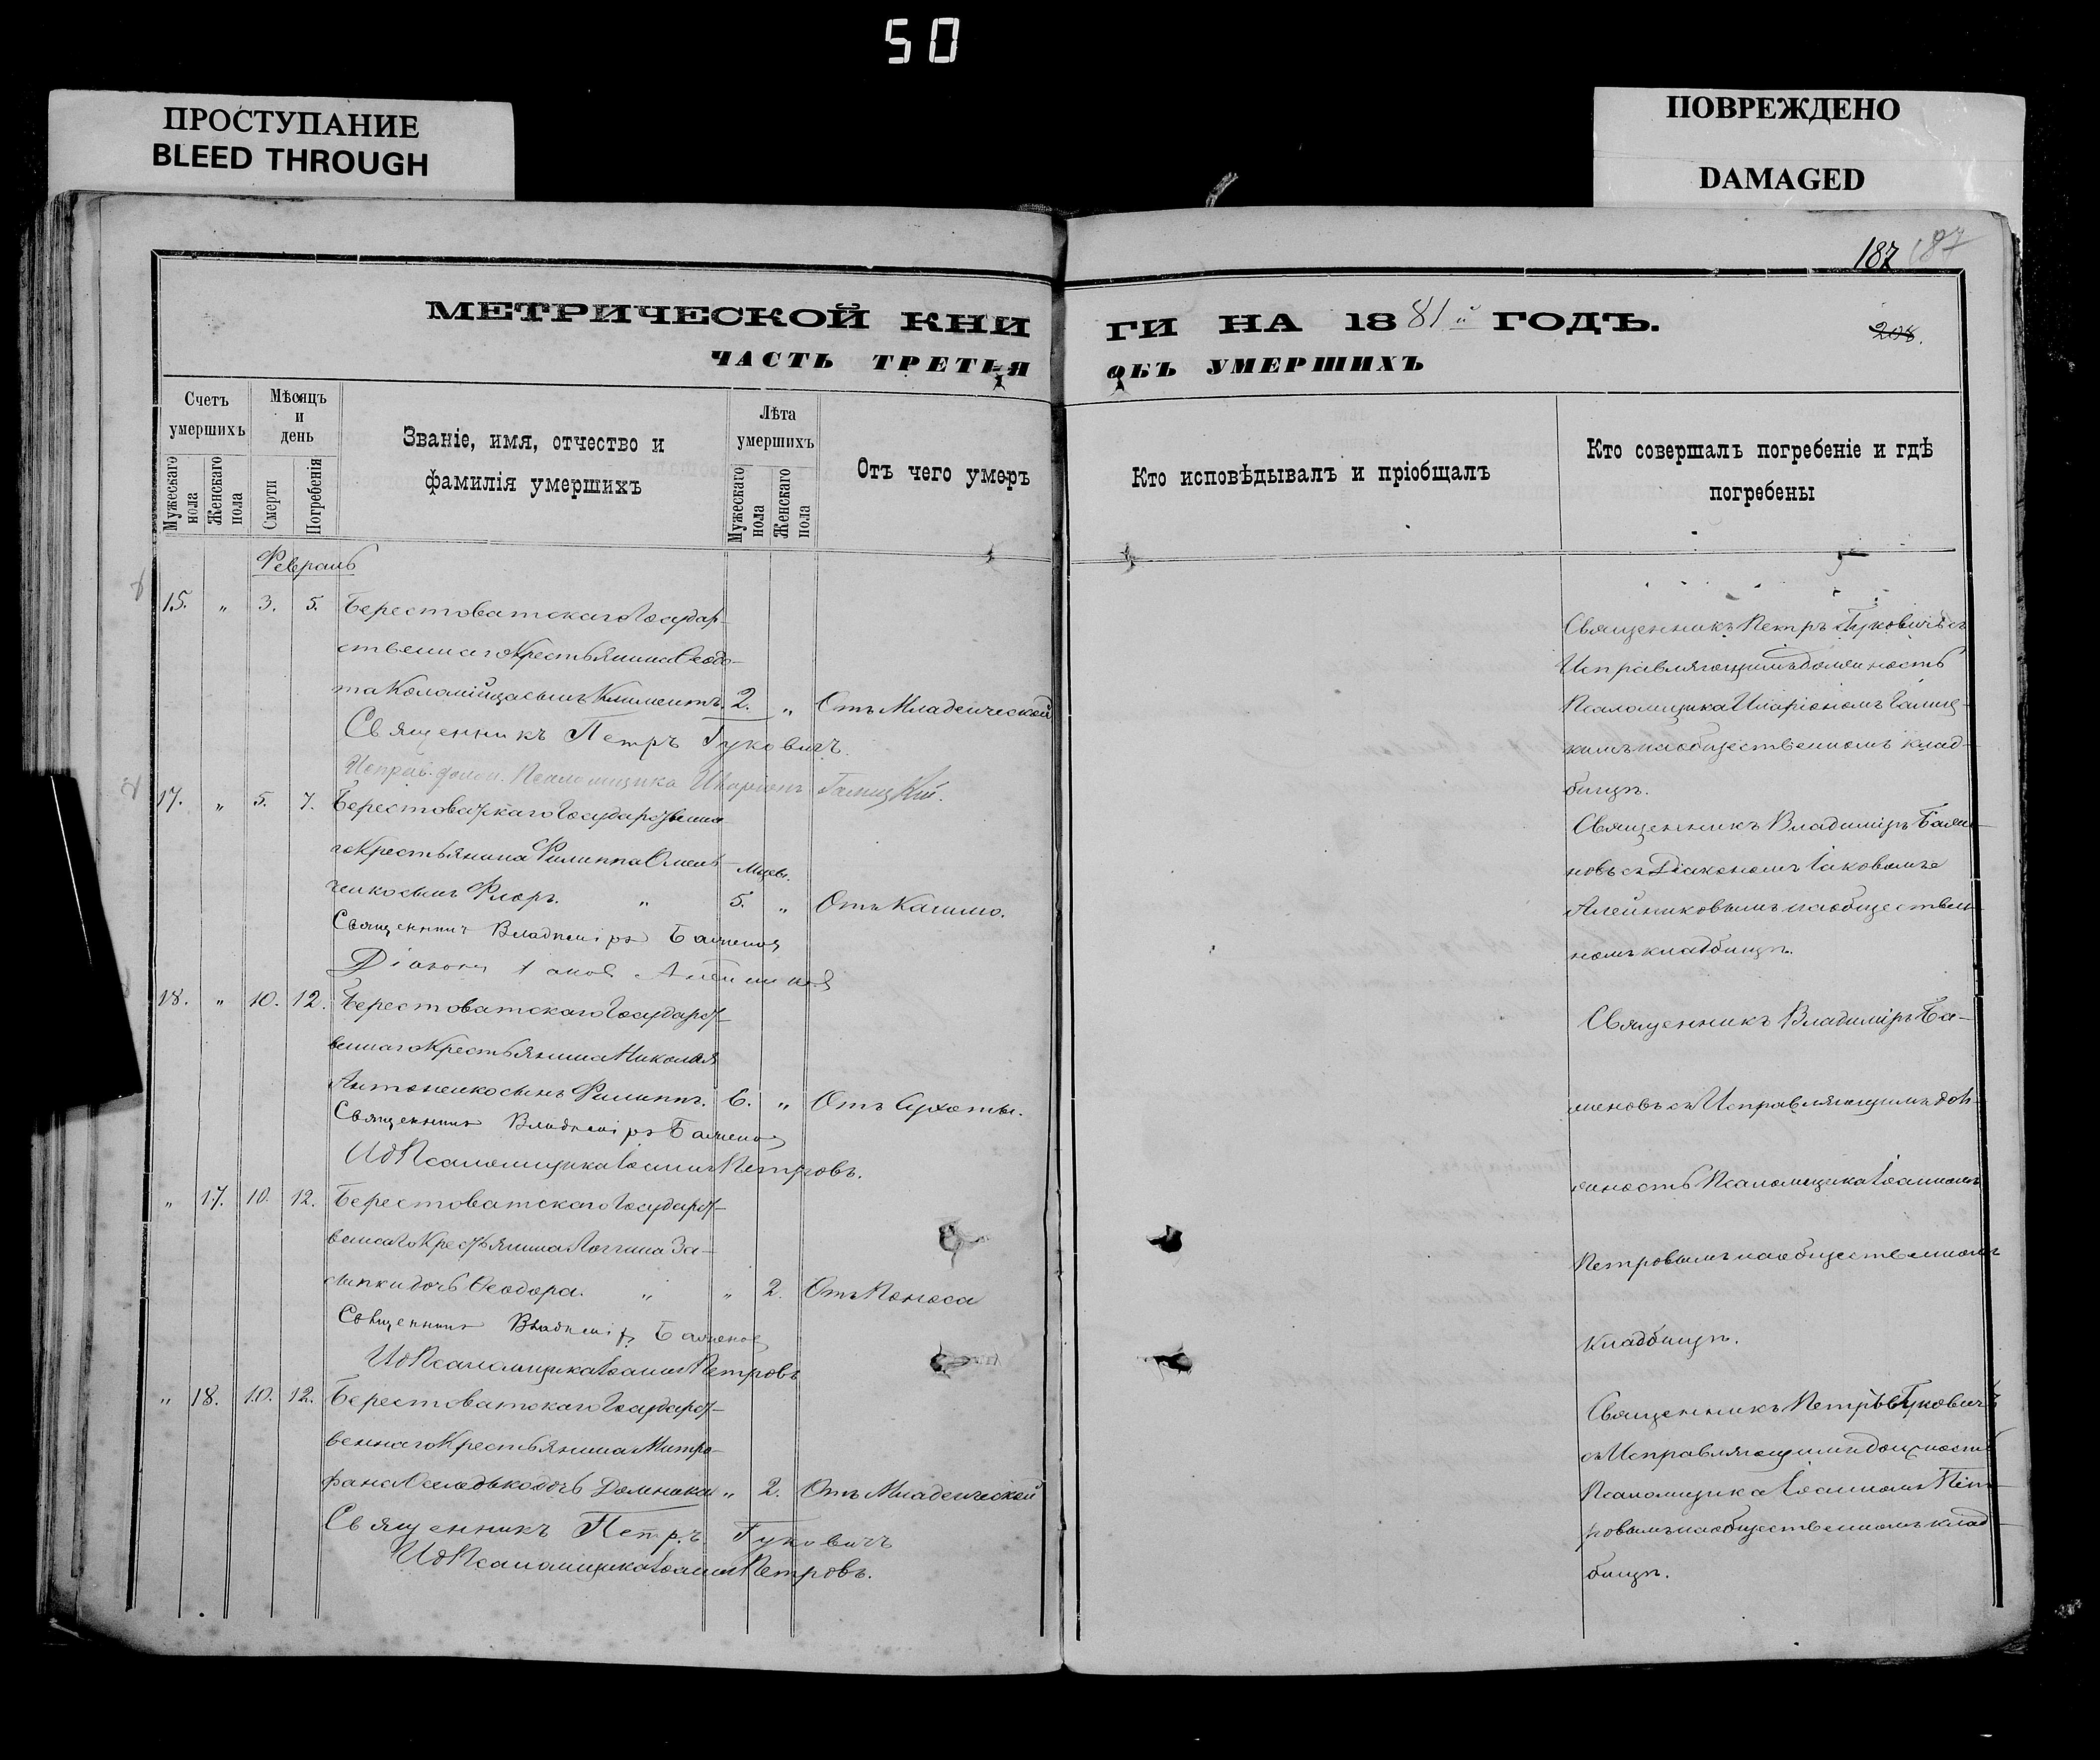 50
ПРОСТУПАНИЕ
BLEED THROUGH
ПОВРЕЖДЕНО
DAMAGED
187 187
МЕТРИЧЕСКОЙ КНИГИ НА 1881й ГОДЪ.
208.
ЧАСТЬ ТРЕТЬЯ ОБЪ УМЕРШИХЪ
Счетъ умершихъ
Мужескаго пола
Женскаго пола
Мѣсяцъ и день
Смерти
Погребенія
Званіе, имя, отчество и
фамилія умершихъ
Лѣта умершихъ
Мужескаго пола
Женскаго пола
Отъ чего умеръ
Кто исповѣдывалъ и пріобщалъ
Кто совершалъ погребеніе и гдѣ
погребены
Февраль
15. „ 3. 5. Берестоватскаго Государ-
ственнаго Крестьянина Ѳеодо-
та Коломійца сынъ Климентъ. 2. „ Отъ Младенческой
Священникъ Петръ Гуковичъ.
Исправ. долж. Псаломщика Иларіонъ Галицкій.
Священникъ Петръ Гуковичъ съ
Исправляющимъ должность
Псаломщика Иларіономъ Галиц-
кимъ на общественномъ клад-
бищѣ.
17. „ 5. 7. Берестоватскаго Государственна-
го Крестьянина Филиппа Омель-
ченко сынъ Флоръ. „ Мцевъ. 5. „ Отъ Кашлю.
Священникъ Владиміръ Баженовъ
Діаконъ Іаковъ Алейниковъ
Священникъ Владиміръ Баже-
новъ съ Діакономъ Іаковомъ
Алейниковымъ на обществен-
номъ кладбищѣ.
18. „ 10. 12. Берестоватскаго Государст-
веннаго Крестьянина Николая
Антоненко сынъ Филиппъ. 6. „ Отъ Сухоты.
Священникъ Владиміръ Баженовъ
ИдПсаломщика Іоаннъ Петровъ.
Священникъ Владиміръ Ба-
женовъ съ Исправляющимъ долж-
ность Псаломщика Іоанномъ
Петровымъ на общественномъ
кладбищѣ.
„ 17. 10. 12. Берестоватскаго Государст-
веннаго Крестьянина Логгина За-
сыпки дочь Ѳеодора. „ „ 2. Отъ Поноса
Священникъ Владиміръ Баженовъ
ИдПсаломщика Іоаннъ Петровъ
„ 18. 10. 12. Берестоватскаго Государст-
веннаго Крестьянина Митро-
фана дочь Домникія „ 2. Отъ Младенческой
Священникъ Петръ Гуковичъ
ИдПсаломщика Іоаннъ Петровъ.
Священникъ Петръ Гуковичъ
съ Исправляющимъ должность
Псаломщика Іоанномъ Пет-
ровымъ на общественномъ клад-
бищѣ.